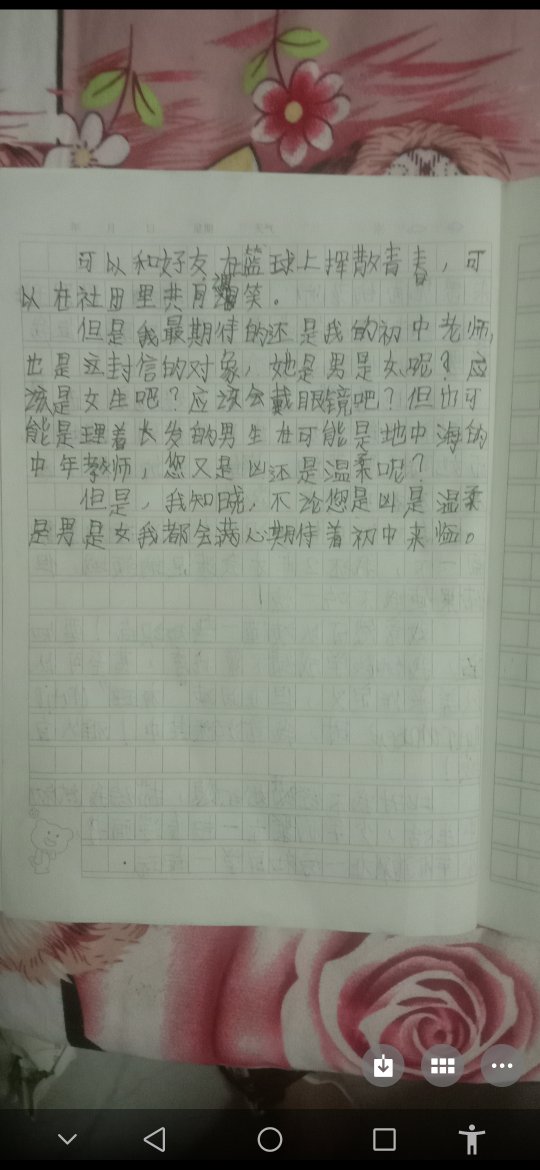 可以和好友在篮球上挥散青春，可
以在社田里共同 笑。
但是我最期待的还是我的初中老师，
也是这封信的对象，她是男是女呢？应
该是女生吧？应该会戴眼镜吧？但也可
能是理着长发的男生也可能是地中海的
中年教师，您又是凶还是温柔呢？
但是，我知晓，不论您是凶是温柔
是男是女我都会满心期待着初中来临。